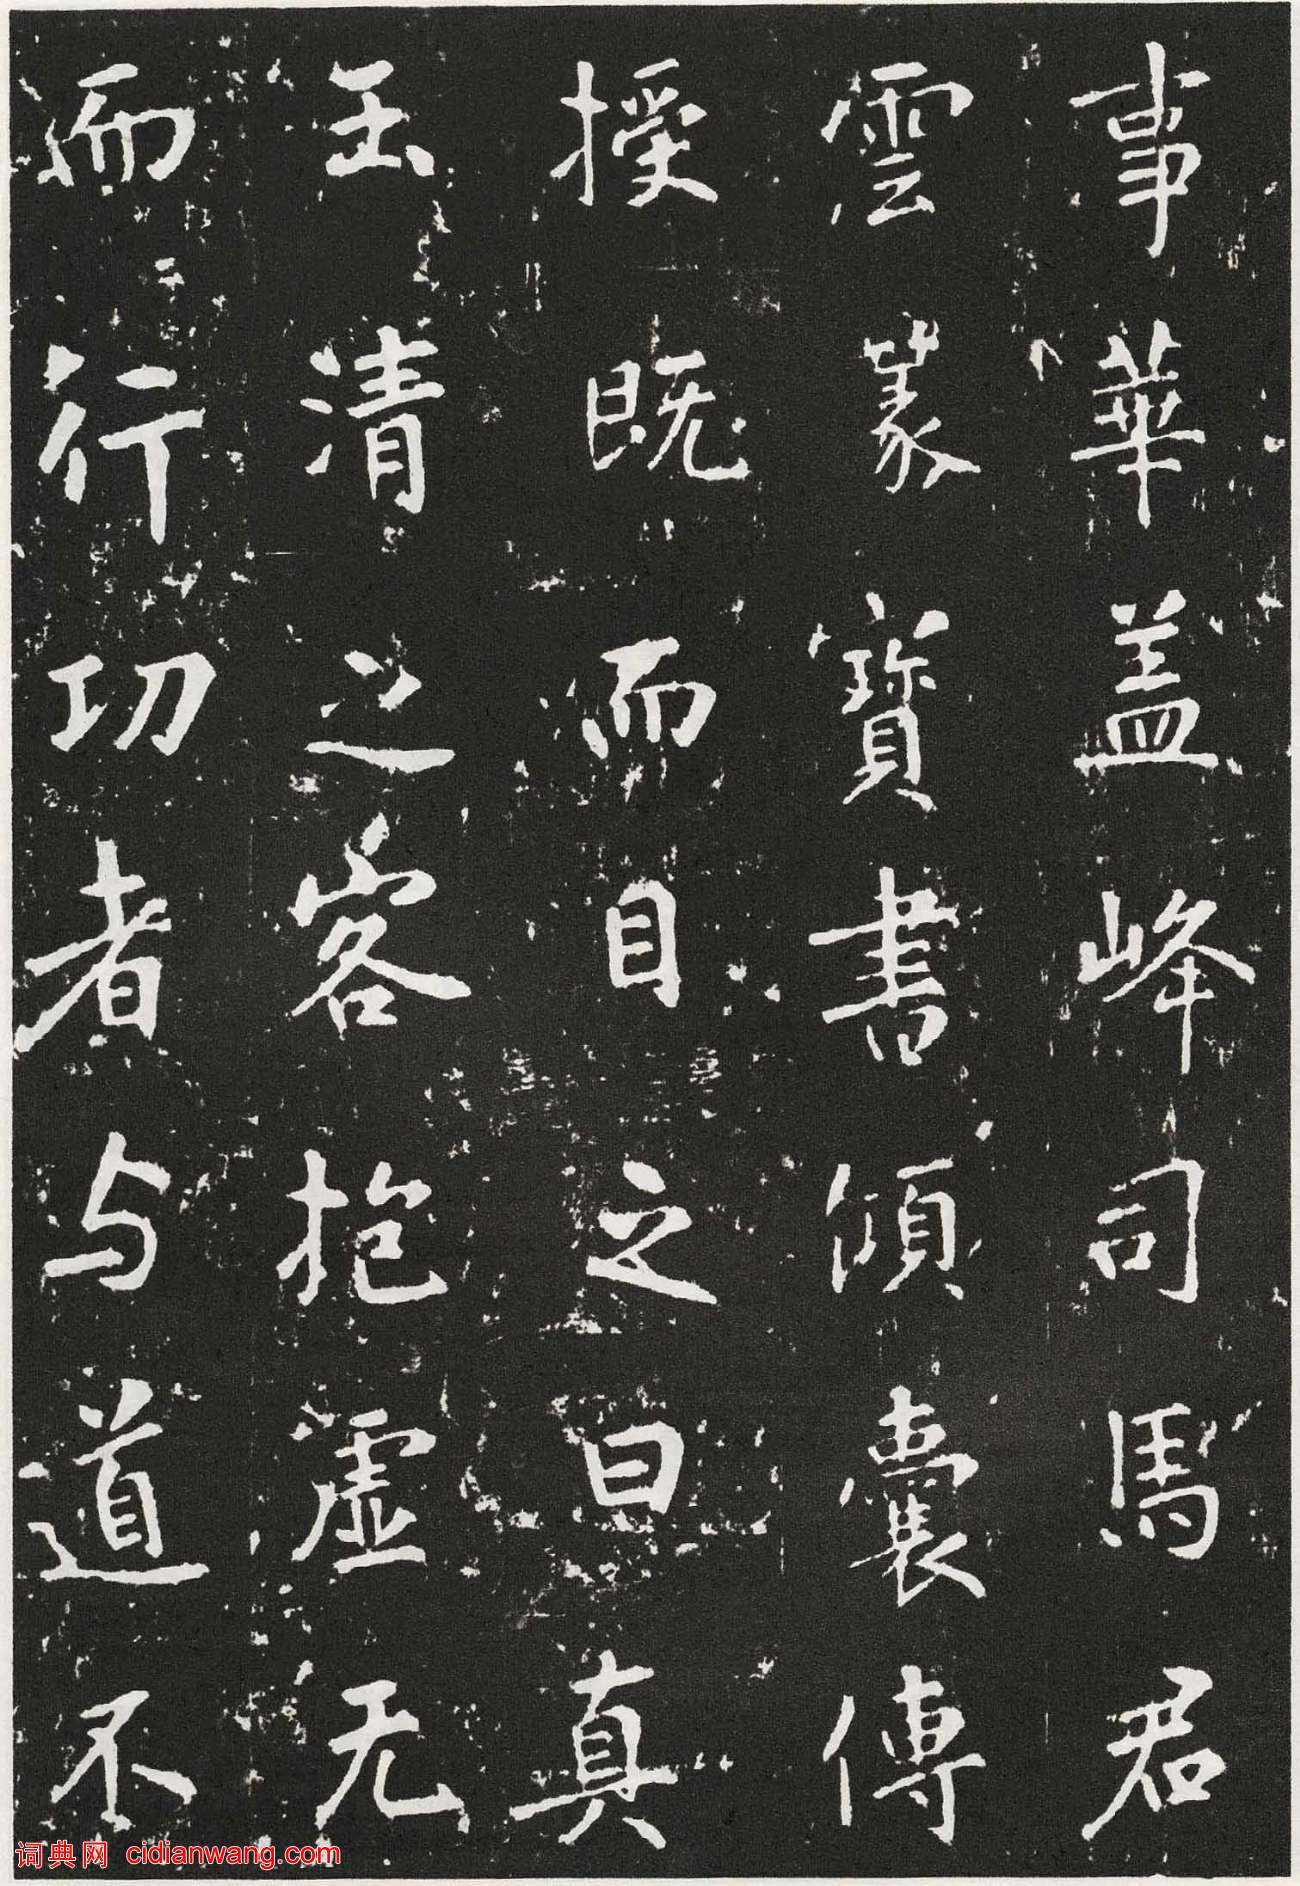 事華盖峰司馬君
雲篆寶書傾囊傳
授既而目之曰真
玉清之客抱虚无
而行功者与道不
词典网 cidianwang.com